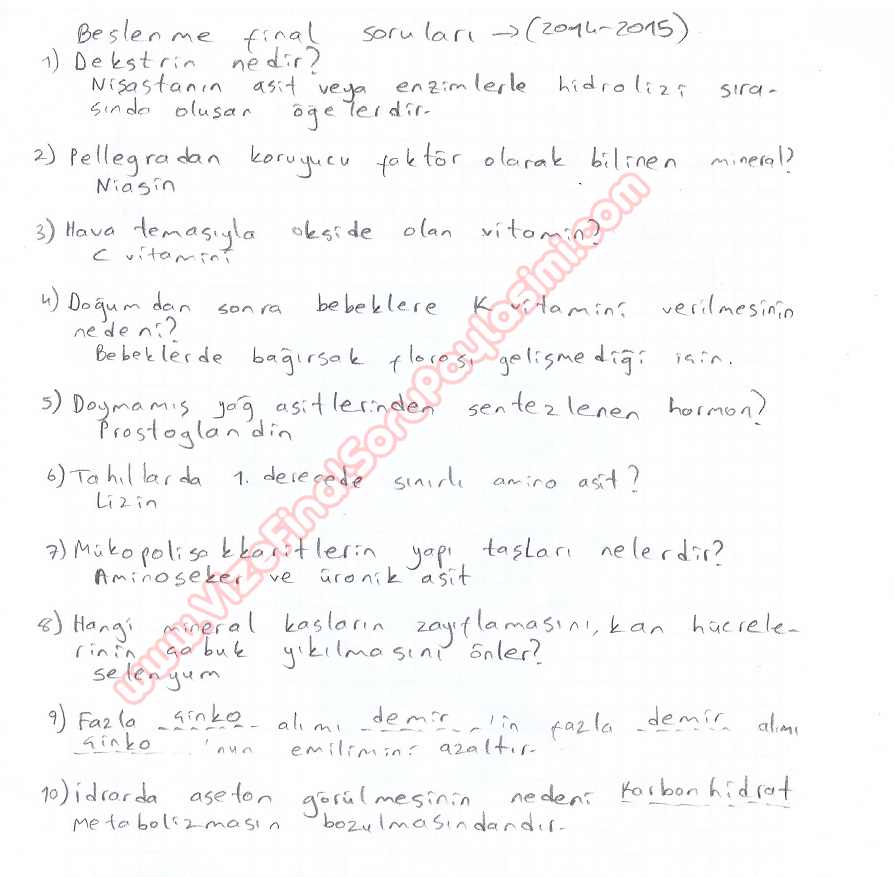 Beslenme final soruları → (2014-2015)
1) Dekstrin nedir?
Nişastanın asit veya enzimlerle hidrolizi sıra-
sında oluşan öğelerdir.
2) Pellegradan koruyucu faktör olarak bilinen mineral?
Niasin
3) Hava temasıyla okside olan vitamin?
C vitamini
4) Doğumdan sonra bebeklere K vitamini verilmesinin
nedeni?
Bebeklerde bağırsak florası gelişmediği için.
5) Doymamış yağ asitlerinden sentezlenen hormon?
Prostoglandin
6) Tahıllarda 1. derecede sınırlı amino asit?
Lizin
7) Mükopolisakkaritlerin yapı taşları nelerdir?
Aminoşeker ve üronik asit
8) Hangi mineral kasların zayıflamasını, kan hücrele-
rinin çabuk yıkılmasını önler?
selenyum
9) Fazla çinko alımı demir 'in fazla demir alımı
çinko 'nun emilimini azaltır.
10) idrarda aseton görülmesinin nedeni Karbonhidrat
Metabolizmasın bozulmasındandır.
www.VizeFinalSoruPaylasimi.com